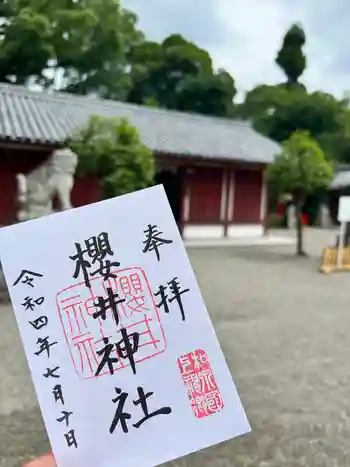 奉拝
櫻井神社
令和四年七月十日
櫻井神社